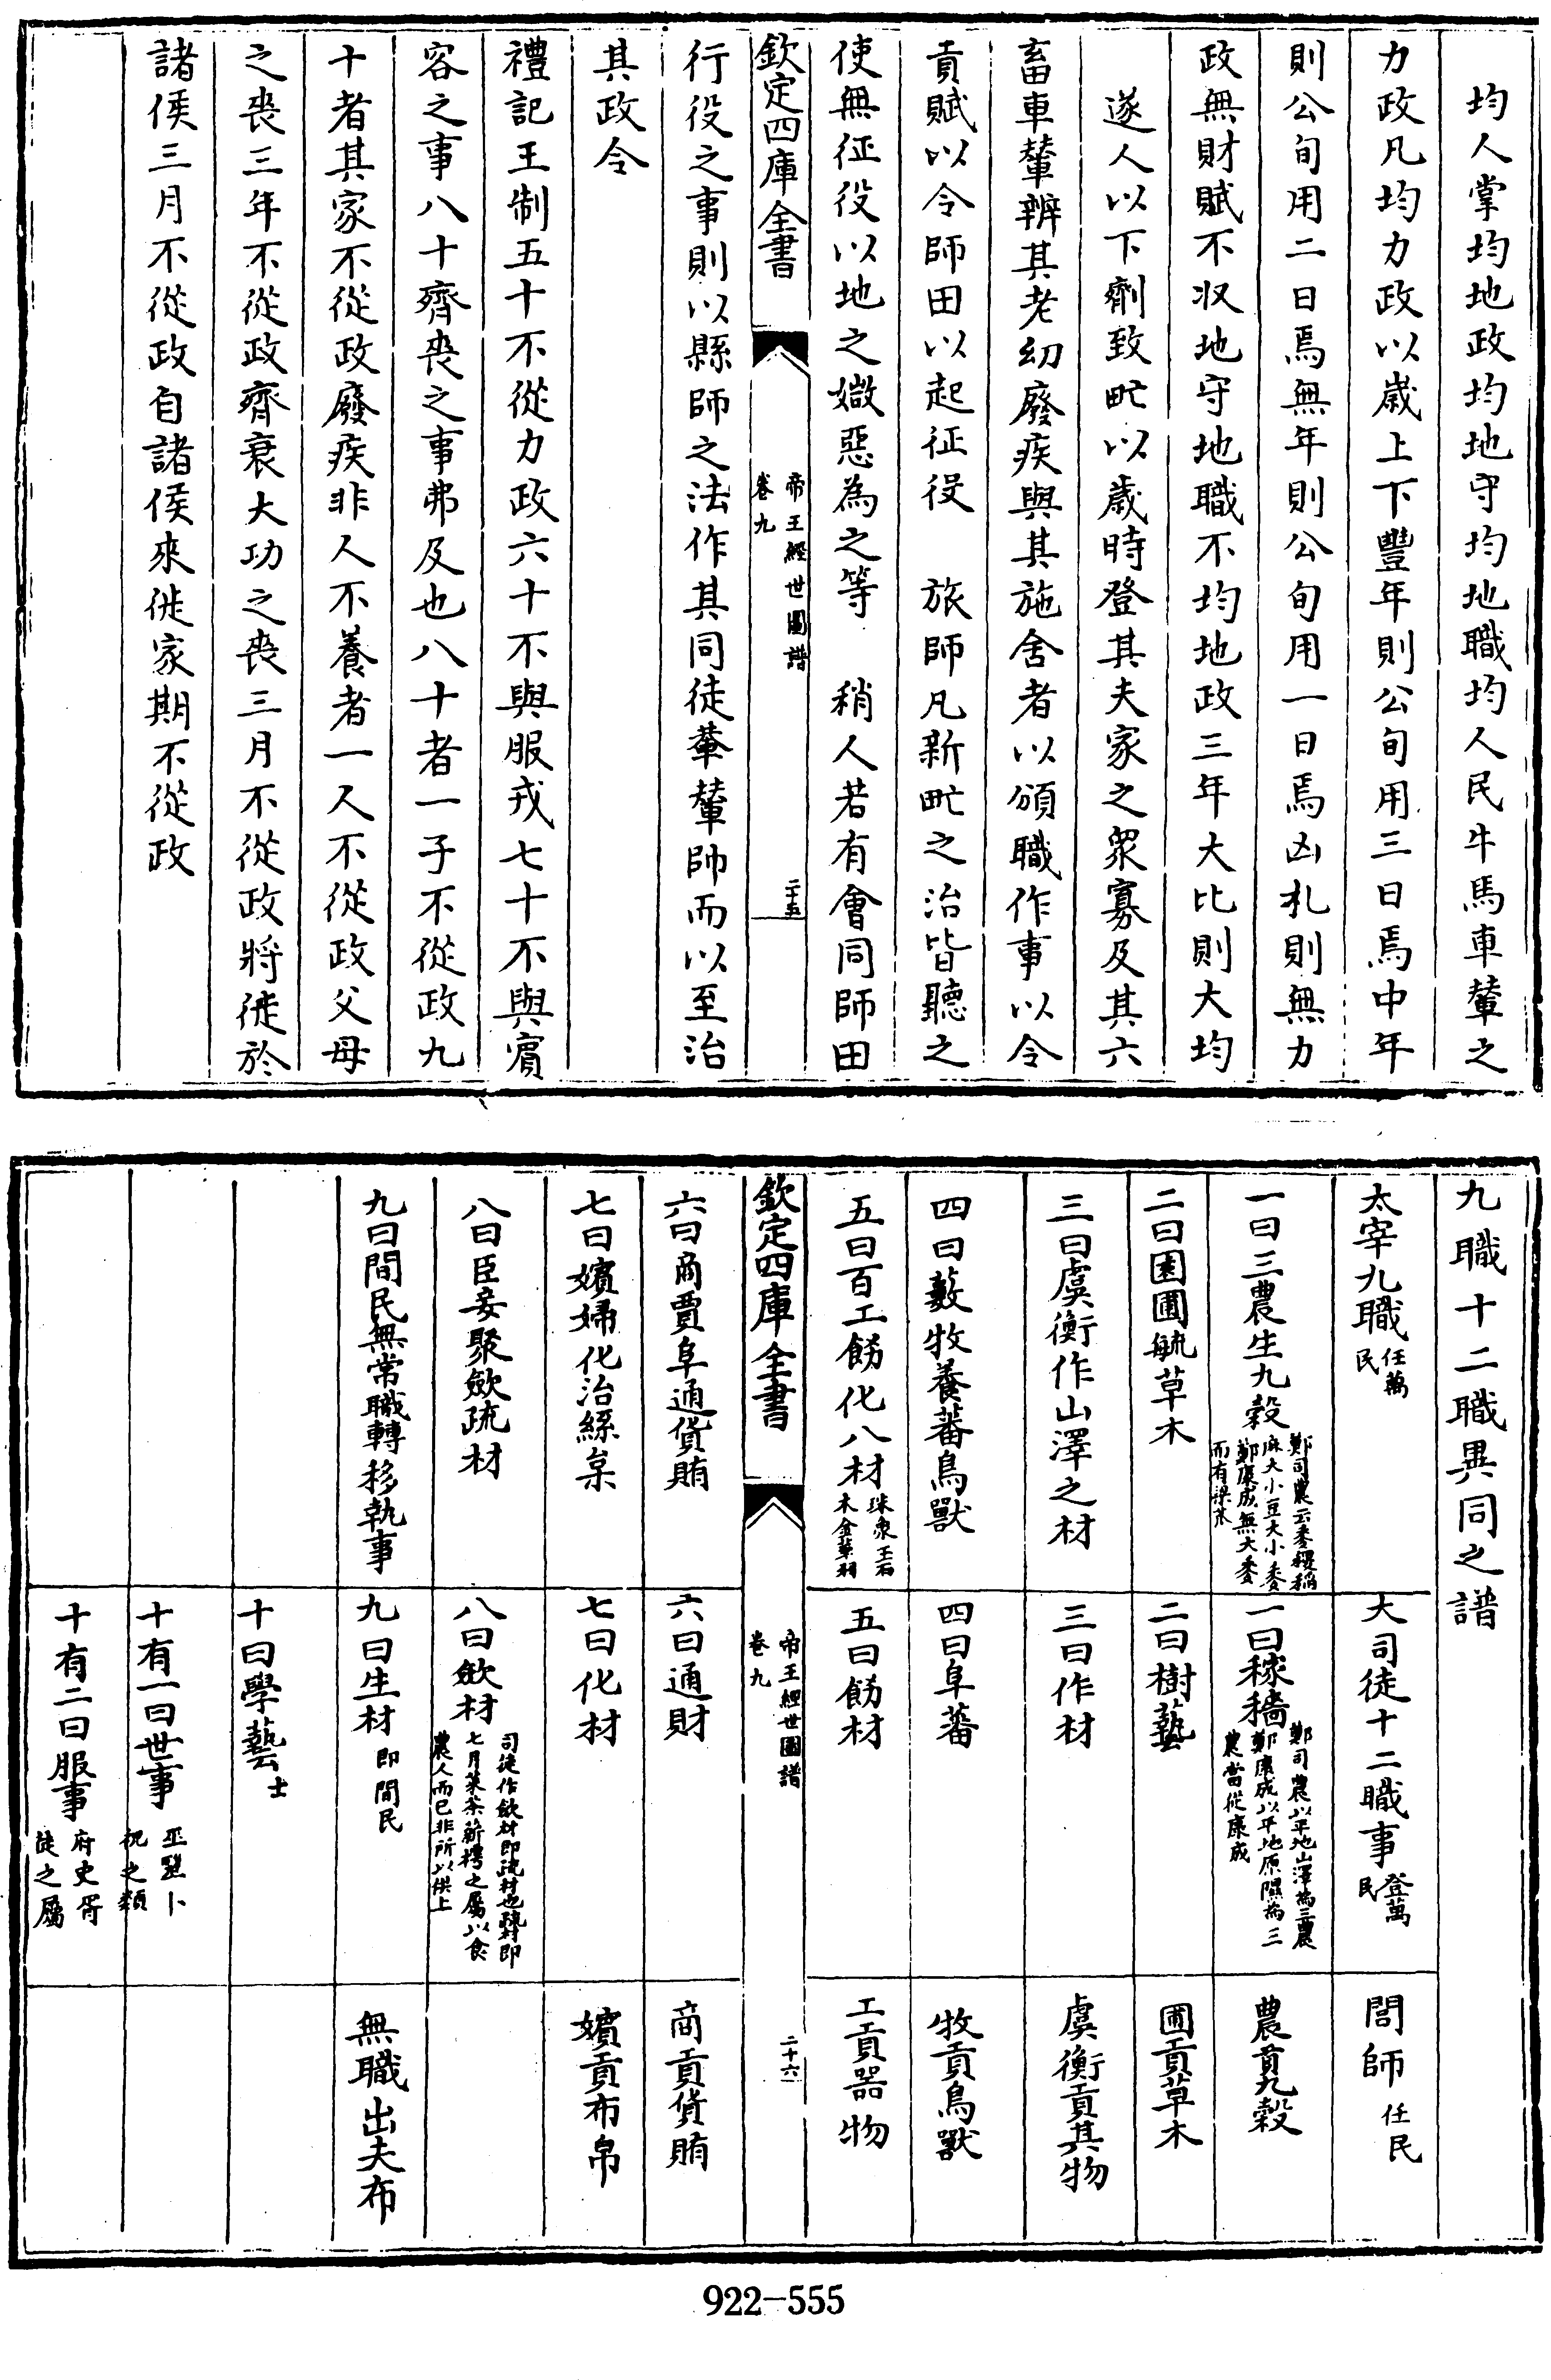 均人掌均地政均地守均地職均人民牛馬車輦之
力政凡均力政以歲上下豐年則公旬用三日焉中年
則公旬用二日焉無年則公旬用一日焉凶札則無力
政無財賦不收地守地職不均地政三年大比則大均
遂人以下劑致甿以歲時登其夫家之衆寡及其六
畜車輦辨其老幼廢疾與其施舍者以頒職作事以令
貢賦以令師田以起征役　旅師凡新甿之治皆聽之
使無征役以地之媺惡為之等　稍人若有會同師田
欽定四庫全書
帝王經世圖譜
卷九
二十五
行役之事則以縣師之法作其同徒輂輦帥而以至治
其政令
禮記王制五十不從力政六十不與服戎七十不與賓
容之事八十齊喪之事弗及也八十者一子不從政九
十者其家不從政廢疾非人不養者一人不從政父母
之喪三年不從政齊衰大功之喪三月不從政將徙於
諸侯三月不從政自諸侯來徙家期不從政
九職十二職異同之譜
太宰九職任萬民
大司徒十二職事登萬民
閭師任民
一曰三農生九穀鄭司農云黍稷稻
麻大小豆大小麥
鄭康成無大麥
而有粱苽
一曰稼穡鄭司農以平地山澤為三農
鄭康成以平地原隰為三
農當從康成
農貢九穀
二曰園圃毓草木
二曰樹藝
圃貢草木
三曰虞衡作山澤之材
三曰作材
虞衡貢其物
四曰藪牧養蕃鳥獸
四曰阜蕃
牧貢鳥獸
五曰百工飭化八材珠象玉石
木金革羽
五曰飭材
工貢器物
欽定四庫全書
帝王經世圖譜
卷九
二十六
六曰商賈阜通貨賄
六曰通財
商貢貨賄
七曰嬪婦化治絲枲
七曰化材
嬪貢布帛
八曰臣妾聚斂疏材
八曰斂材司徒作斂材即疏材也疏材即
七月菜荼薪樗之屬以食
農人而已非所以供上
九曰間民無常職轉移執事
九曰生材即間民
無職出夫布
十曰學藝士
十有一曰世事巫毉卜
祝之類
十有二曰服事府史胥
徒之屬
922-555